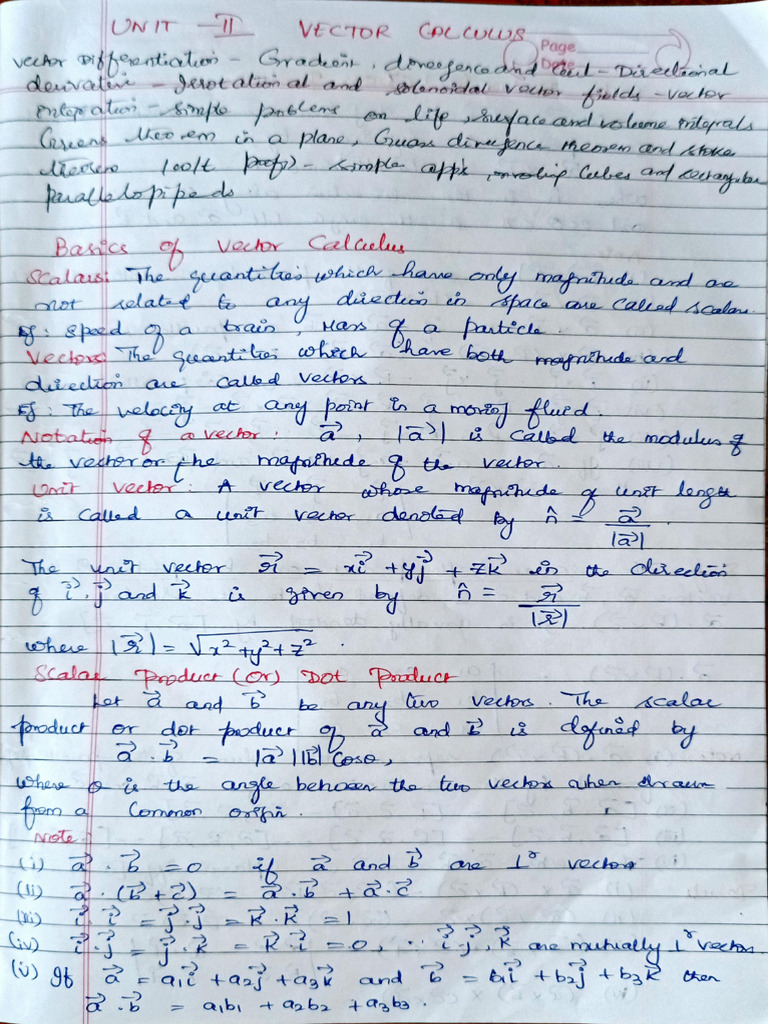 UNIT - II VECTOR CALCULUS
Page
Date
Vector Differentiation - Gradient, divergence and Curl - Directional
derivative - Irrotational and solenoidal vector fields - vector
integration - simple problems on life, surface and volume integrals
Greens theorem in a plane, Gauss divergence theorem and stoke
theorem (wo/t proofs) - simple appx, involving Cubes and rectangular
parallelopipeds.
Basics of Vector Calculus
Scalars: The quantities which have only magnitude and are
not related to any direction in space are called scalar.
Eg: speed of a train, Mass of a particle.
Vectors: The quantities which have both magnitude and
direction are called vectors
Eg: The velocity at any point in a moving fluid.
Notation of a vector: a⃗, |a⃗| is called the modulus of
the vector or the magnitude of the vector.
Unit Vector: A vector whose magnitude of unit length
is called a unit vector denoted by n̂ = a⃗/|a⃗|
The unit vector r⃗ = xi⃗ + yj⃗ + zk⃗ in the direction
of i⃗, j⃗ and k⃗ is given by n̂ = r⃗/|r⃗|
where |r⃗| = √x² + y² + z².
Scalar Product (or) Dot Product
Let a⃗ and b⃗ be any two vectors. The scalar
product or dot product of a⃗ and b⃗ is defined by
a⃗ · b⃗ = |a⃗| |b⃗| Cosθ,
where θ is the angle between the two vectors when drawn
from a Common origin.
Note:
(i) a⃗ · b⃗ = 0 if a⃗ and b⃗ are ⊥r vectors
(ii) a⃗ · (b⃗ + c⃗) = a⃗ · b⃗ + a⃗ · c⃗
(iii) i⃗ · i⃗ = j⃗ · j⃗ = k⃗ · k⃗ = 1
(iv) i⃗ · j⃗ = j⃗ · k⃗ = k⃗ · i⃗ = 0, ∵ i⃗, j⃗, k⃗ are mutually ⊥r vectors
(v) If a⃗ = a₁i⃗ + a₂j⃗ + a₃k⃗ and b⃗ = b₁i⃗ + b₂j⃗ + b₃k⃗ then
a⃗ · b⃗ = a₁b₁ + a₂b₂ + a₃b₃.